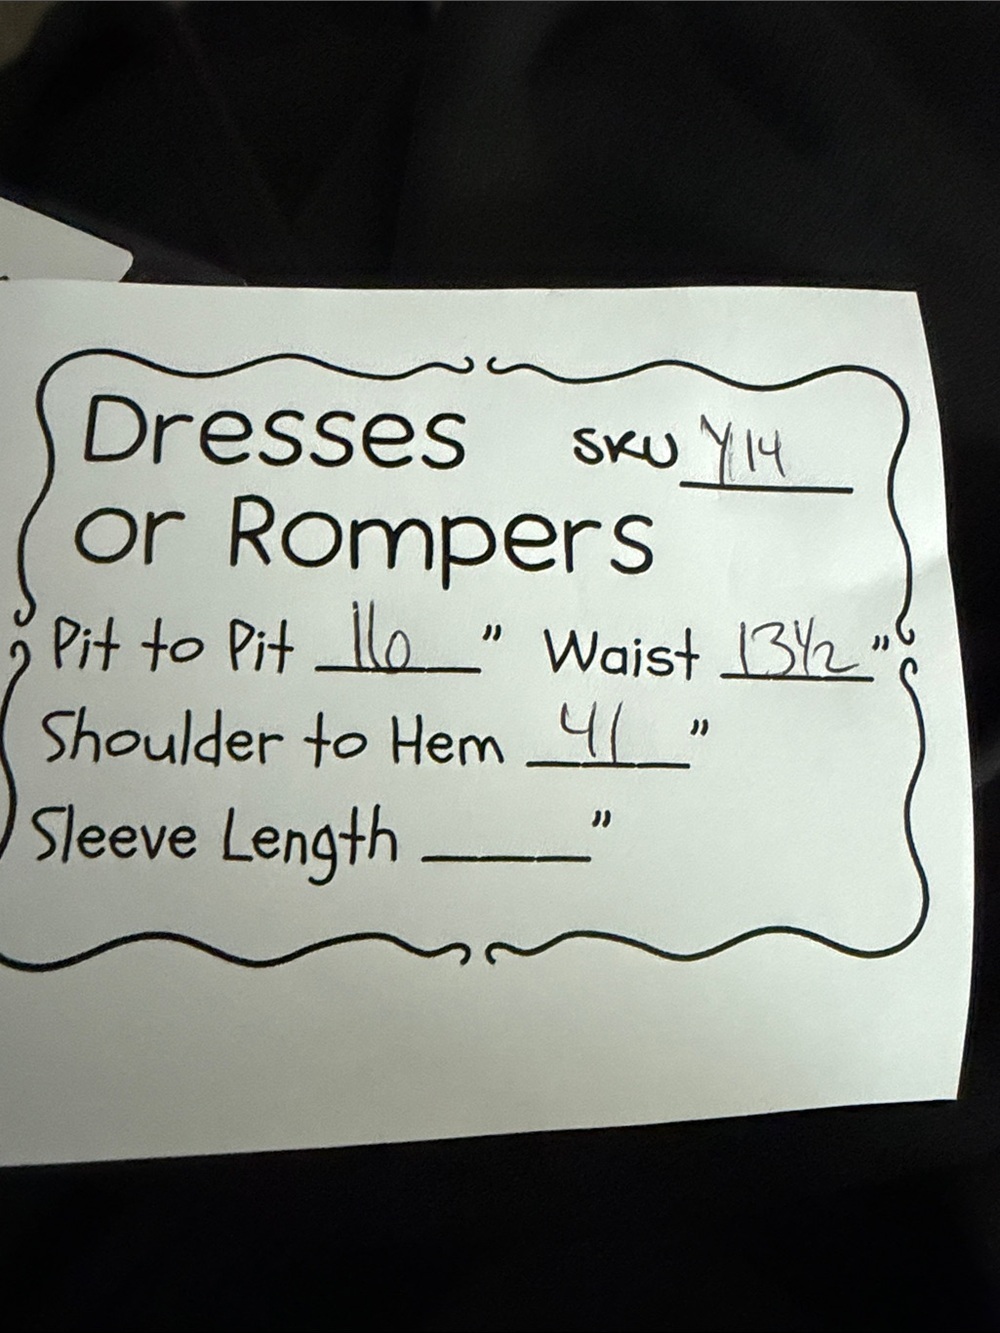 Dresses SKU Y14
or Rompers
Pit to Pit 16 " Waist 13 1/2 "
Shoulder to Hem 41 "
Sleeve Length ______ "